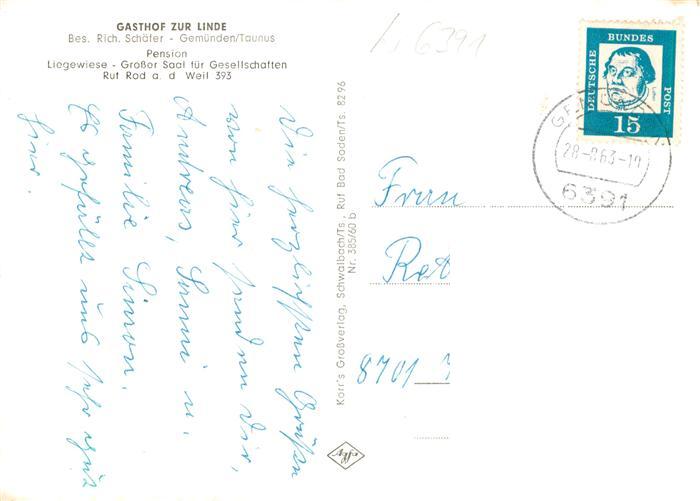 GASTHOF ZUR LINDE
Bes. Rich. Schäfer - Gemünden/Taunus
Pension
Liegewiese - Großer Saal für Gesellschaften
Ruf Rod a. d. Weil 393
6391
DEUTSCHE BUNDESPOST
15
28.-8.63-19
6391
Die herzlichsten Grüße
von hier senden Dir,
Andreas, u.
Familie Simon.
Es gefällt uns sehr gut
hier.
Korr's Großverlag, Schwalbach/Ts., Ruf Bad Soden/Ts. 8296
Nr. 385/60 b
Agfa
Frau
8701